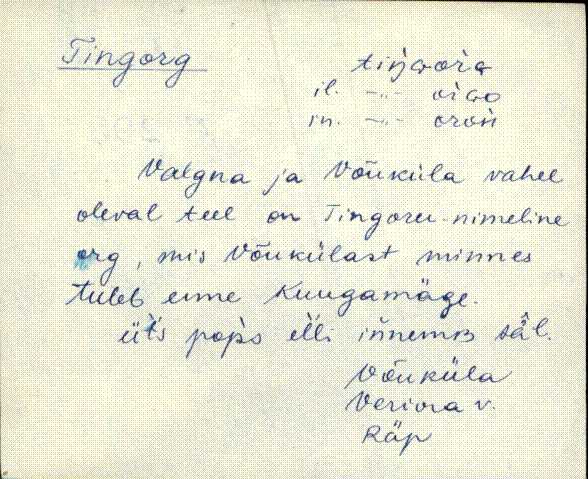 Tingorg
tiŋɢorɢ
il. -„- oiɢo
in. -„- oroń
Valgna ja Võuküla vahel
oleval teel on Tingoru-nimeline
org, mis Võukülast minnes
tuleb enne Kuugamäge.
üt's pop's el'li innemb sääl.
Võuküla
Veriora v.
Räp